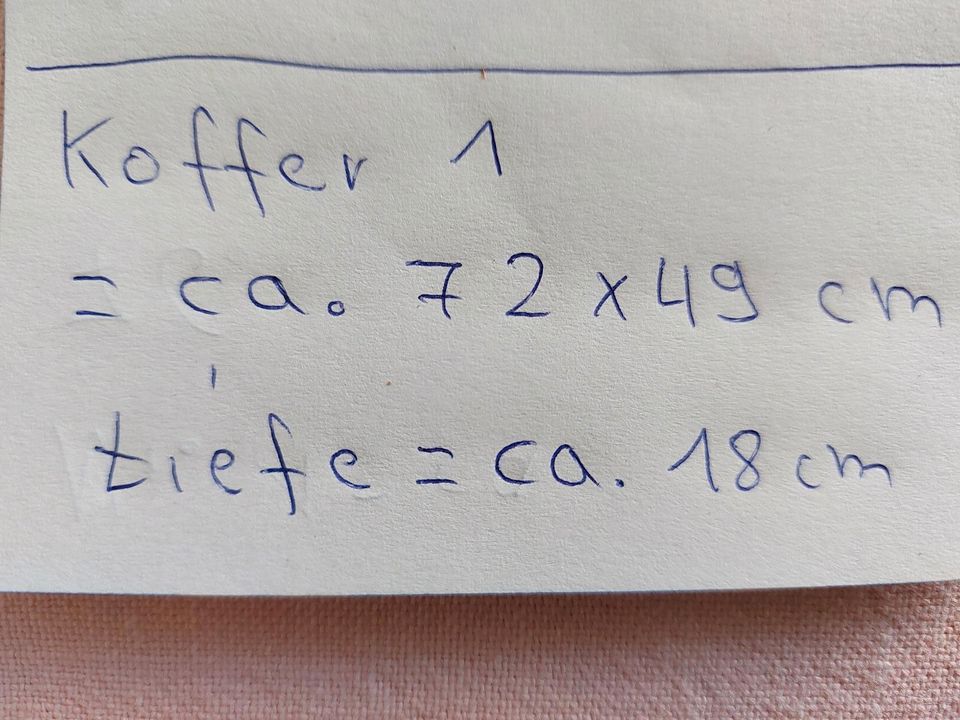 Koffer 1
= ca. 72 x 49 cm
tiefe = ca. 18 cm